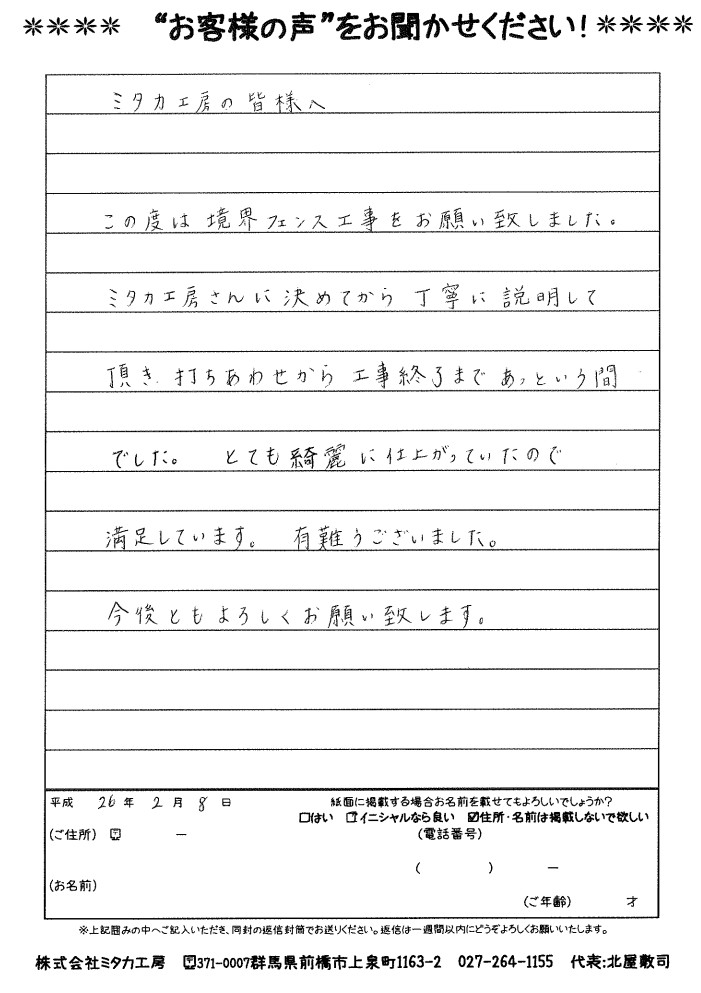 ****　“お客様の声”をお聞かせください！****
ミタカ工房の皆様へ
この度は 境界フェンス工事をお願い致しました。
ミタカ工房さんに 決めてから 丁寧に 説明して
頂き、打ちあわせから 工事終了まで あっという間
でした。　とても綺麗に仕上がっていたので
満足しています。　有難うございました。
今後ともよろしくお願い致します。
平成 26 年 2 月 8 日
紙面に掲載する場合お名前を載せてもよろしいでしょうか？
□はい　□イニシャルなら良い　☑住所・名前は掲載しないで欲しい
(ご住所) 〒　－　(電話番号)
(　　　)　－
(お名前)
(ご年齢)　才
※上記囲みの中へご記入いただき、同封の返信封筒でお送りください。返信は一週間以内にどうぞよろしくお願いいたします。
株式会社ミタカ工房　〒371-0007群馬県前橋市上泉町1163-2　027-264-1155　代表:北屋敷司